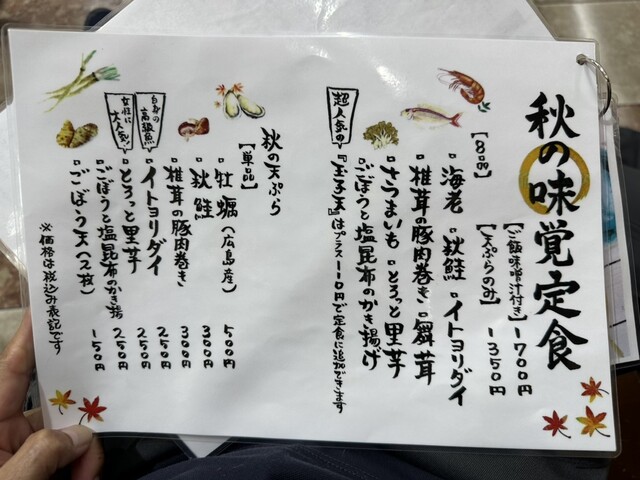 秋の味覚定食
【ご飯味噌汁付き】 1700円
【天ぷらのみ】 1350円
【8品】
・海老 ・秋鮭 ・イトヨリダイ
・椎茸の豚肉巻き ・舞茸
・さつまいも ・とろっと里芋
・ごぼうと塩昆布のかき揚げ
超人気の
『玉子天』はプラス110円で定食に追加できます
秋の天ぷら
【単品】
・牡蠣(広島産) 500円
・秋鮭 300円
・椎茸の豚肉巻き 300円
白身の高級魚
・イトヨリダイ 250円
女性に大人気!
・とろっと里芋 250円
・ごぼうと塩昆布のかき揚 250円
・ごぼう天(2枚) 150円
※価格は税込み表記です